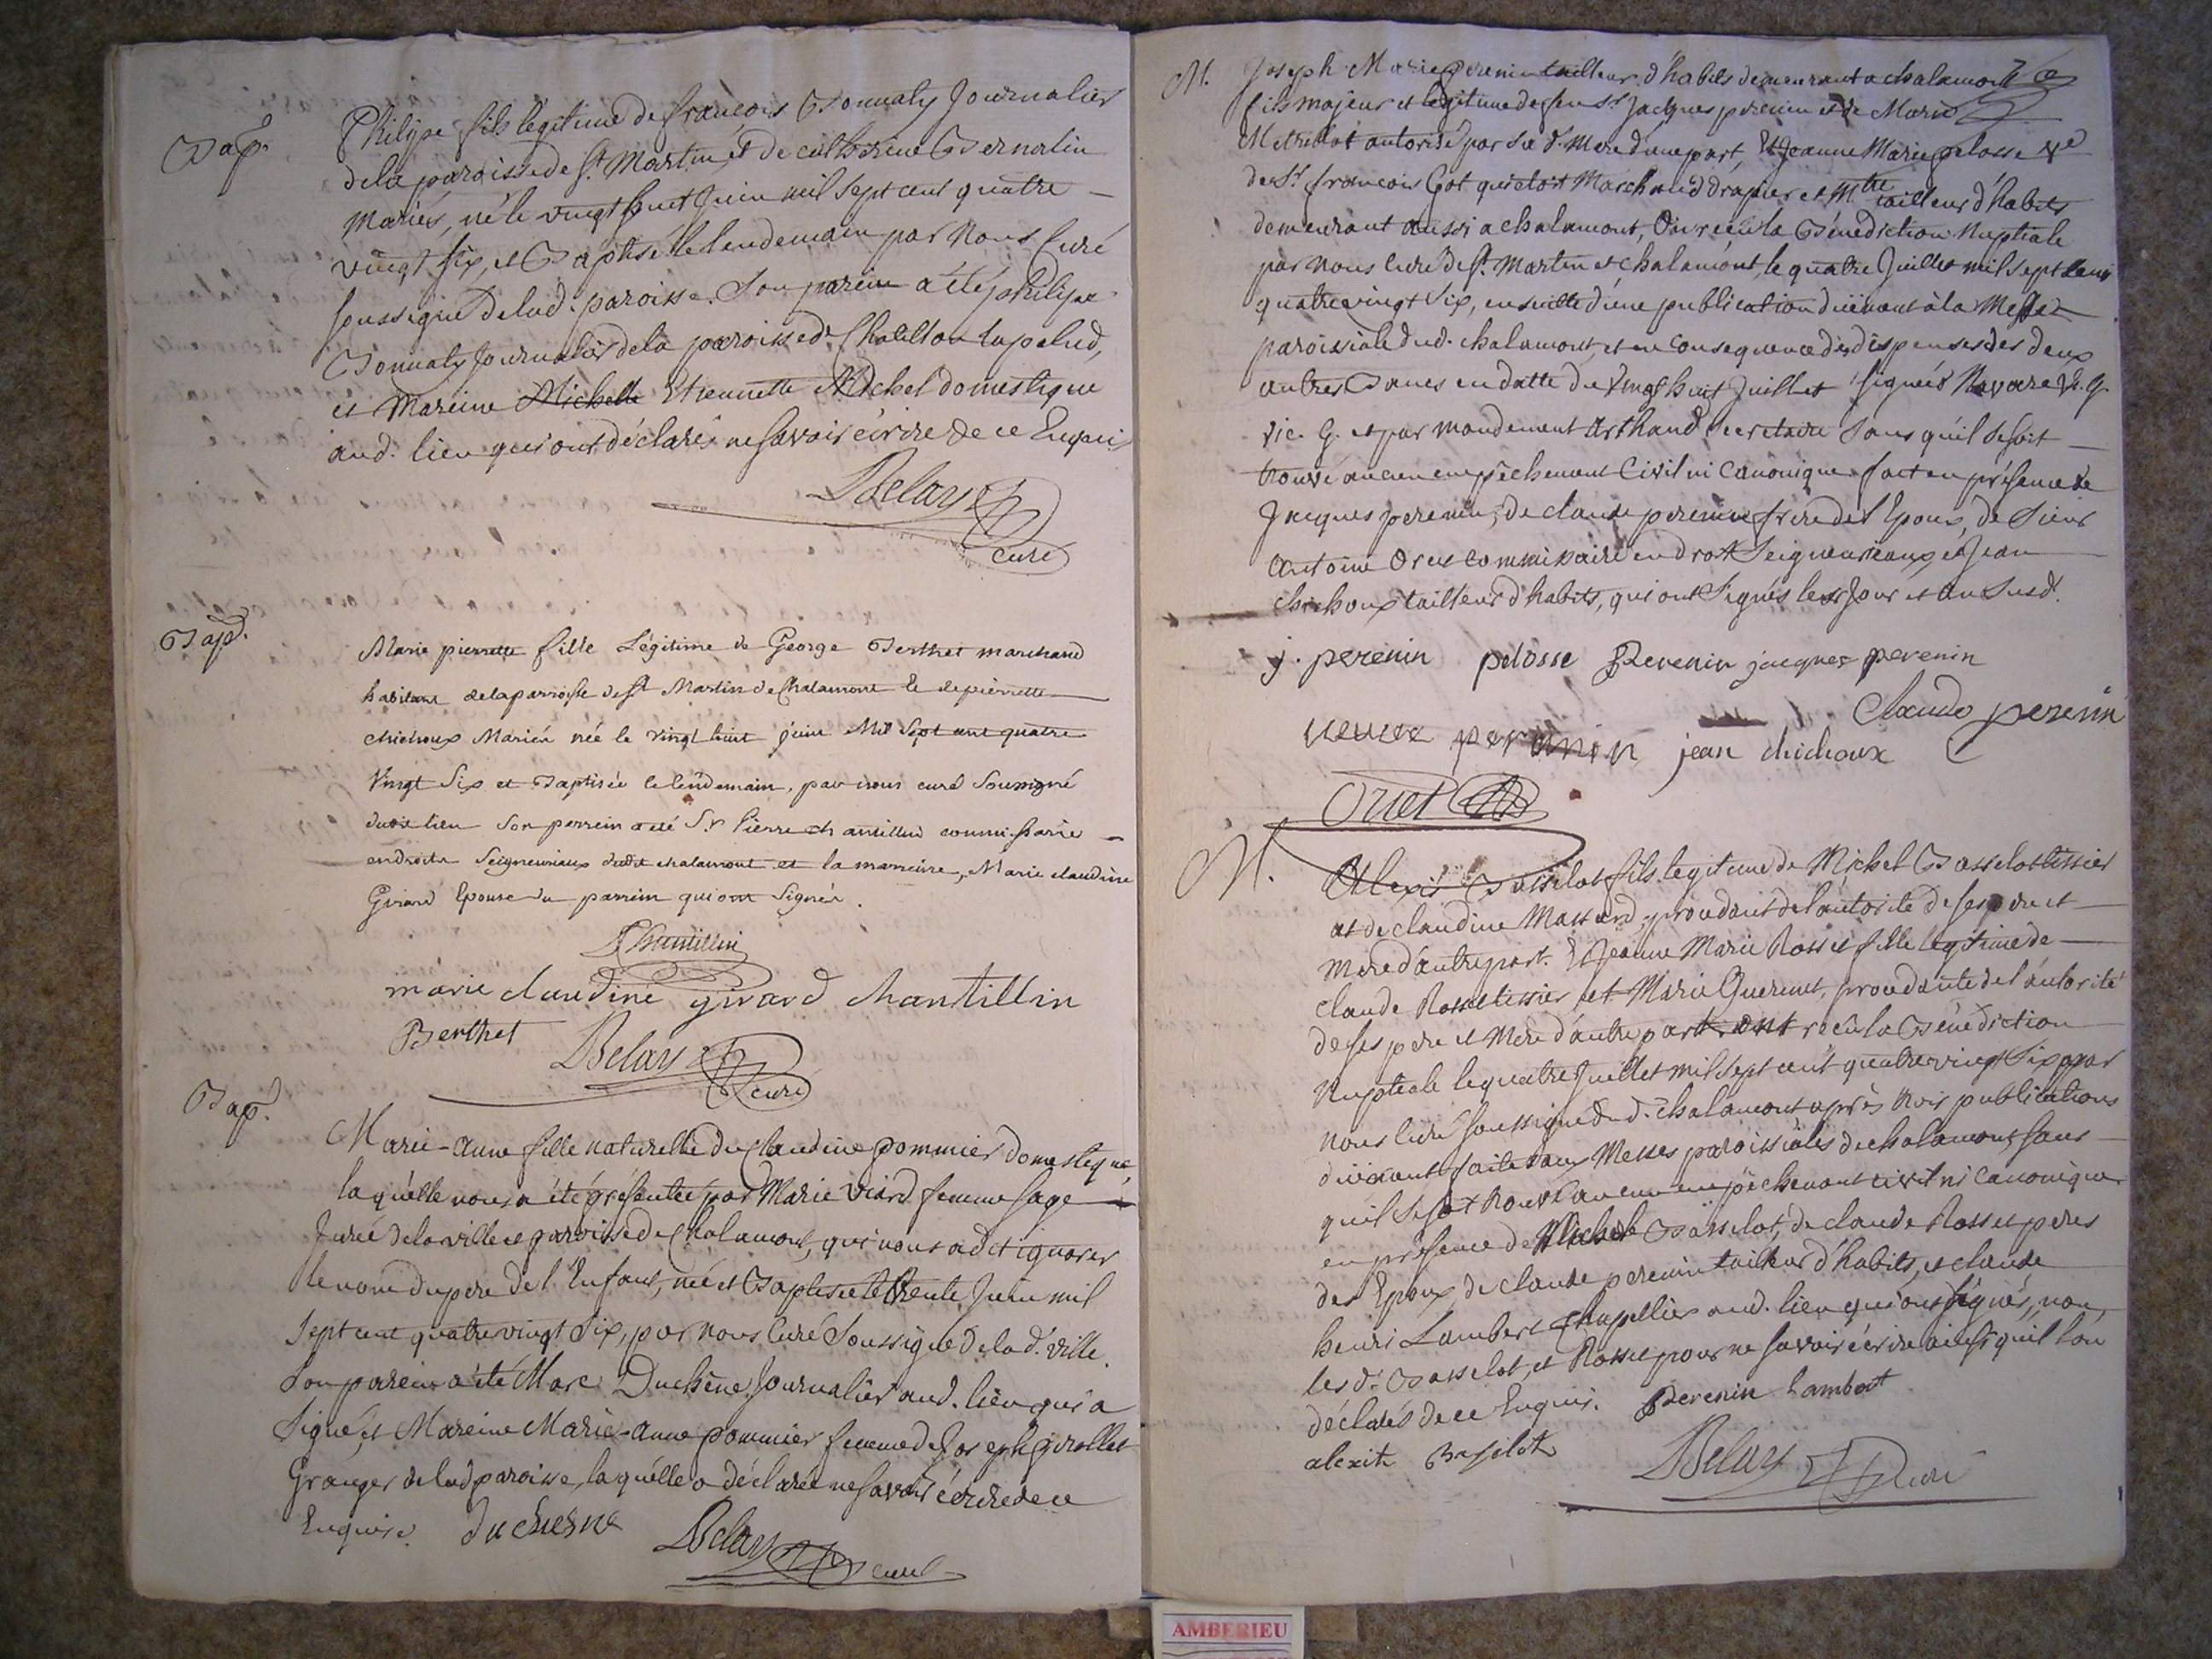 Bap.
Philipe fils légitime de françois Bonnaty Journalier
dela paroisse de St. Martin, et de catherine Bernalin
Mariés, né le vingt huit Juin mil sept cent quatre
vingt six, et Baptisé le lendemain par Nous Curé
soussigné delad. paroisse. Son parein a été philipe
Bonnaty Journalier dela paroisse de Chatillon lapalud,
et Mareine Michelle Etiennette Michel domestique
aud. lieu qui ont déclarés ne savoir écrire de ce Enquis
Belay
curé
Bap.
Marie pierrette fille Légitime de George Berthet marchand
habitant delaparroisse de St Martin de Chalamont et de pierrette
chichoux Mariés née le vingt huit juin Mil Sept cent quatre
Vingt Six et Baptisée le lendemain, par nous curé Soussigné
dudit lieu Son perrein a été Sr. Pierre chantillin commissaire
endroits Seigneuriaux dudit chalamont et la marreine, Marie claudine
Girard Epouse du parrein qui ont Signés.
Chantillin
marie claudine girard chantillin
Berthet
Belay
curé
Bap.
Marie-anne fille naturelle de Claudine pommier domestique,
laquelle nous a été présentée par Marie Viard femme sage
Jurée dela ville et paroisse de Chalamont, qui nous a dit ignorer
le nom du pere de l'Enfant, née et Baptisée le trente Juin mil
sept cent quatre vingt six, par nous Curé Soussigné delad. ville.
Son parein a été Marc Duchêne Journalier aud. lieu qui a
Signé, et Mareine Marie-anne pommier femme de Joseph girollet
Granger de lad paroisse, laquelle a déclarée ne savoir écrire de ce
Enquise. duchesne
Belay curé
M.
Joseph Marie perenin tailleur d'habits demeurant a chalamont
fils majeur et légitime de feu Sr Jacques perenin et de Marie
autorisé par sa d. Mere d'une part, Et Jeanne Marie pelosse Ve
de Sr. francois Got qui etoit Marchand drapier et Mtre tailleur d'habits
demeurant aussi a chalamont, Ont reçu la Bénédiction Nuptiale
par nous Curé de St. Martin et chalamont, le quatre Juillet mil sept cent
quatre vingt six, ensuitte d'une publication duement à la Messe
paroissiale dud. chalamont, et en consequence des dispenses des deux
autres Bancs en datte du Vingt huit Juillet signées Navare V. g.
vic. G. et par mandement Arthaud secretaire sans qu'il se soit
trouvé aucun empêchement Civil ni Canonique fait en présence de
Jacques perenin, de claude perenin frere de l'Epoux, de Sieur
Antoine Oruet commissaire en droit Seigneuriaux, et Jean
chichoux tailleur d'habits, qui ont Signés les jour et an susd.
j. perenin pelosse Perenin jacques perenin
Claude perenin
veuve perenin jean chichoux
Oruet
M.
Alexis Basselot fils légitime de Michel Basselot tissier
et de claudine Massard, procédant de l'autorité de ses pere et
mere d'autre part. Et Jeanne Marie Rosset fille légitime de
claude Rosset tissier et Marie Guerenet, procédante de l'autorité
de ses pere et Mere d'autre part ont reçu la Bénédiction
Nuptiale le quatre Juillet mil sept cent quatre vingt Six par
nous Curé soussigné dud. chalamont après trois publications
duement faites aux Messes paroissiales de chalamont, sans
qu'il se soit trouvé aucun empêchement civil ni canonique
en présence de Michel Basselot, de claude Rosset peres
des Epoux, de claude perenin tailleur d'habits, et claude
henri Lambert Chapellier aud. lieu qui ont signés, non
les d. Basselot, et Rosset pour ne savoir écrire ainsi qu'il l'on
déclarés de ce Enquis. Perenin lambert
alexit Basilot
Belay curé
AMBERIEU